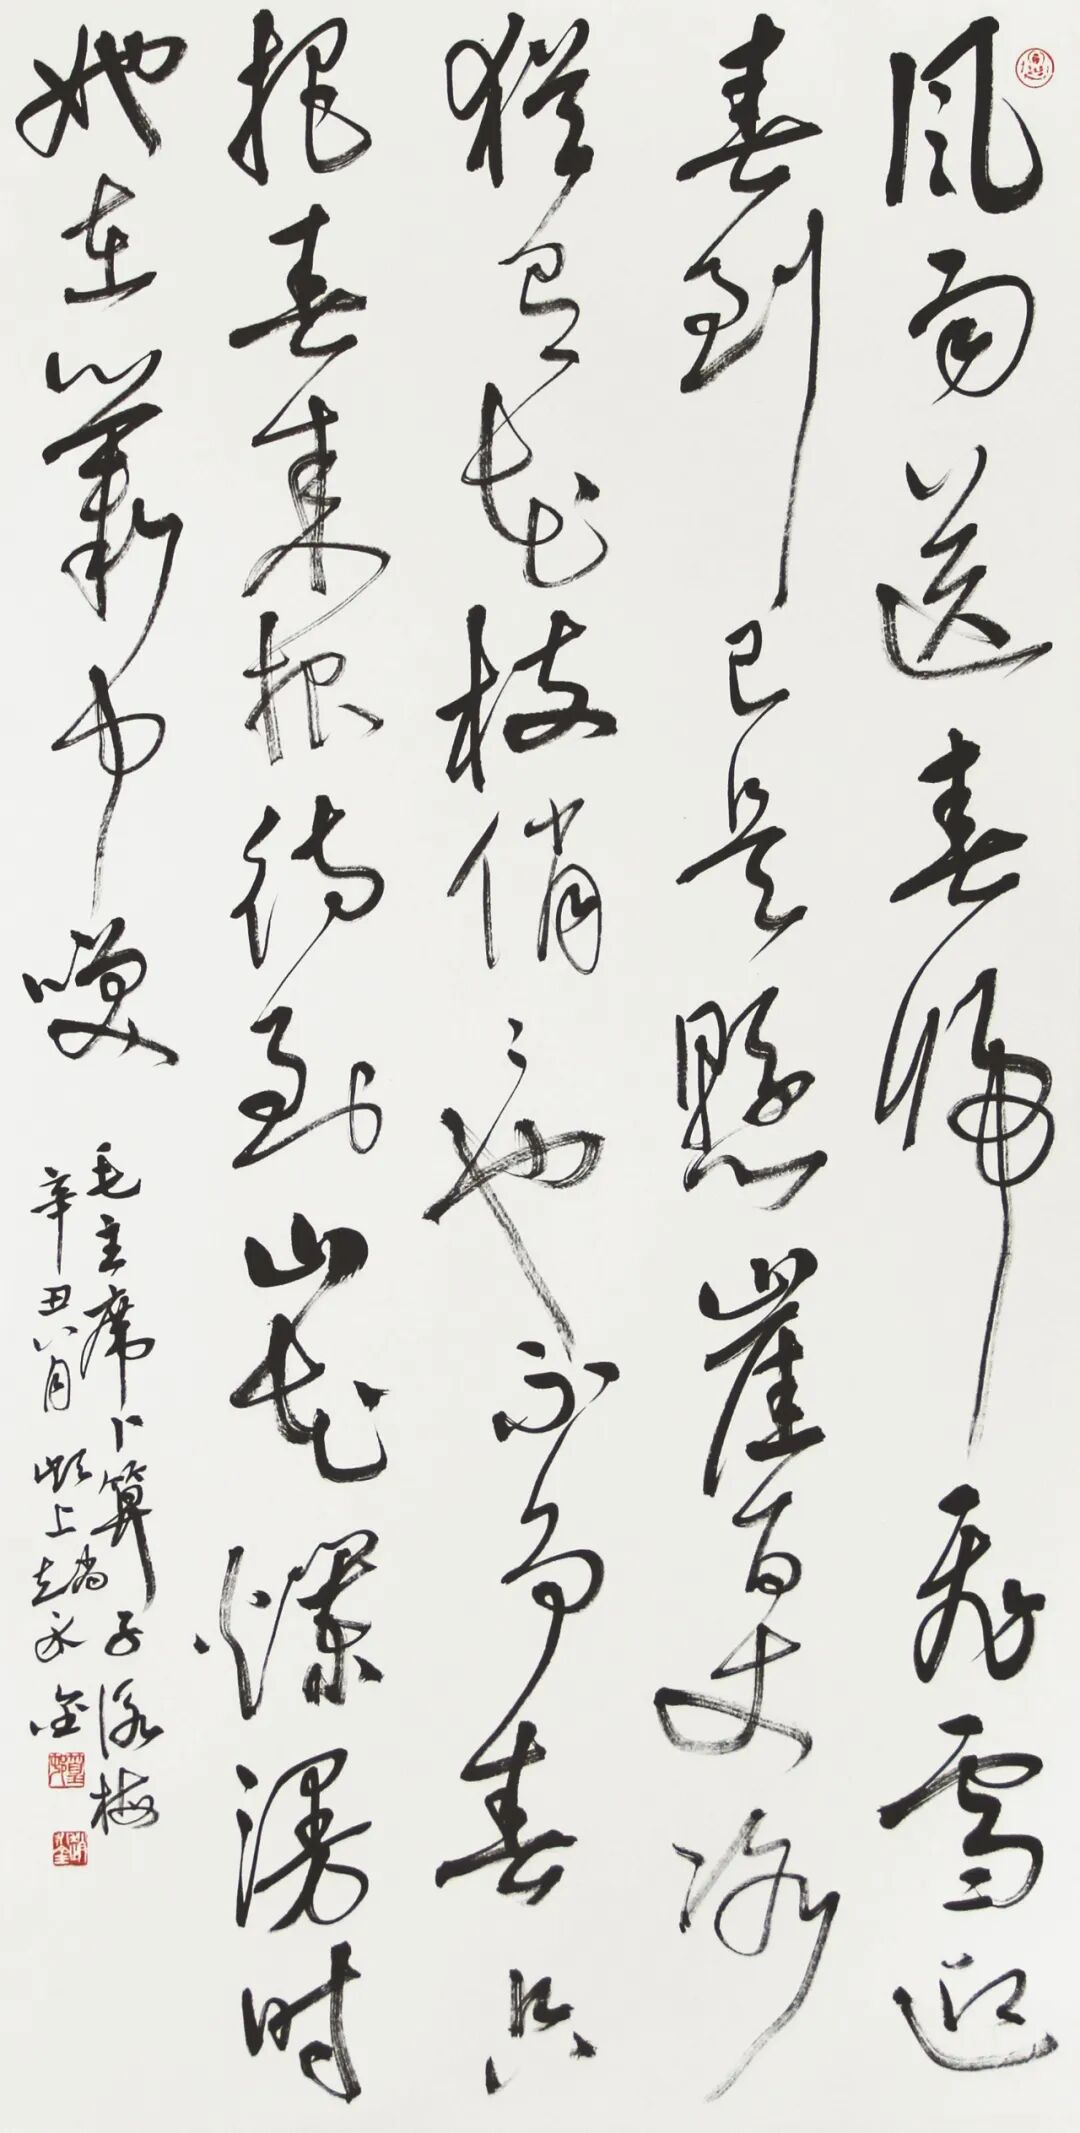 风雨送春归飞雪迎
春到已是懸崖百丈冰
猶有花枝俏〻也不争春只
把春来报待到山花烂漫时
她在丛中咲
毛主席卜算子咏梅
辛丑八月颍上趙永